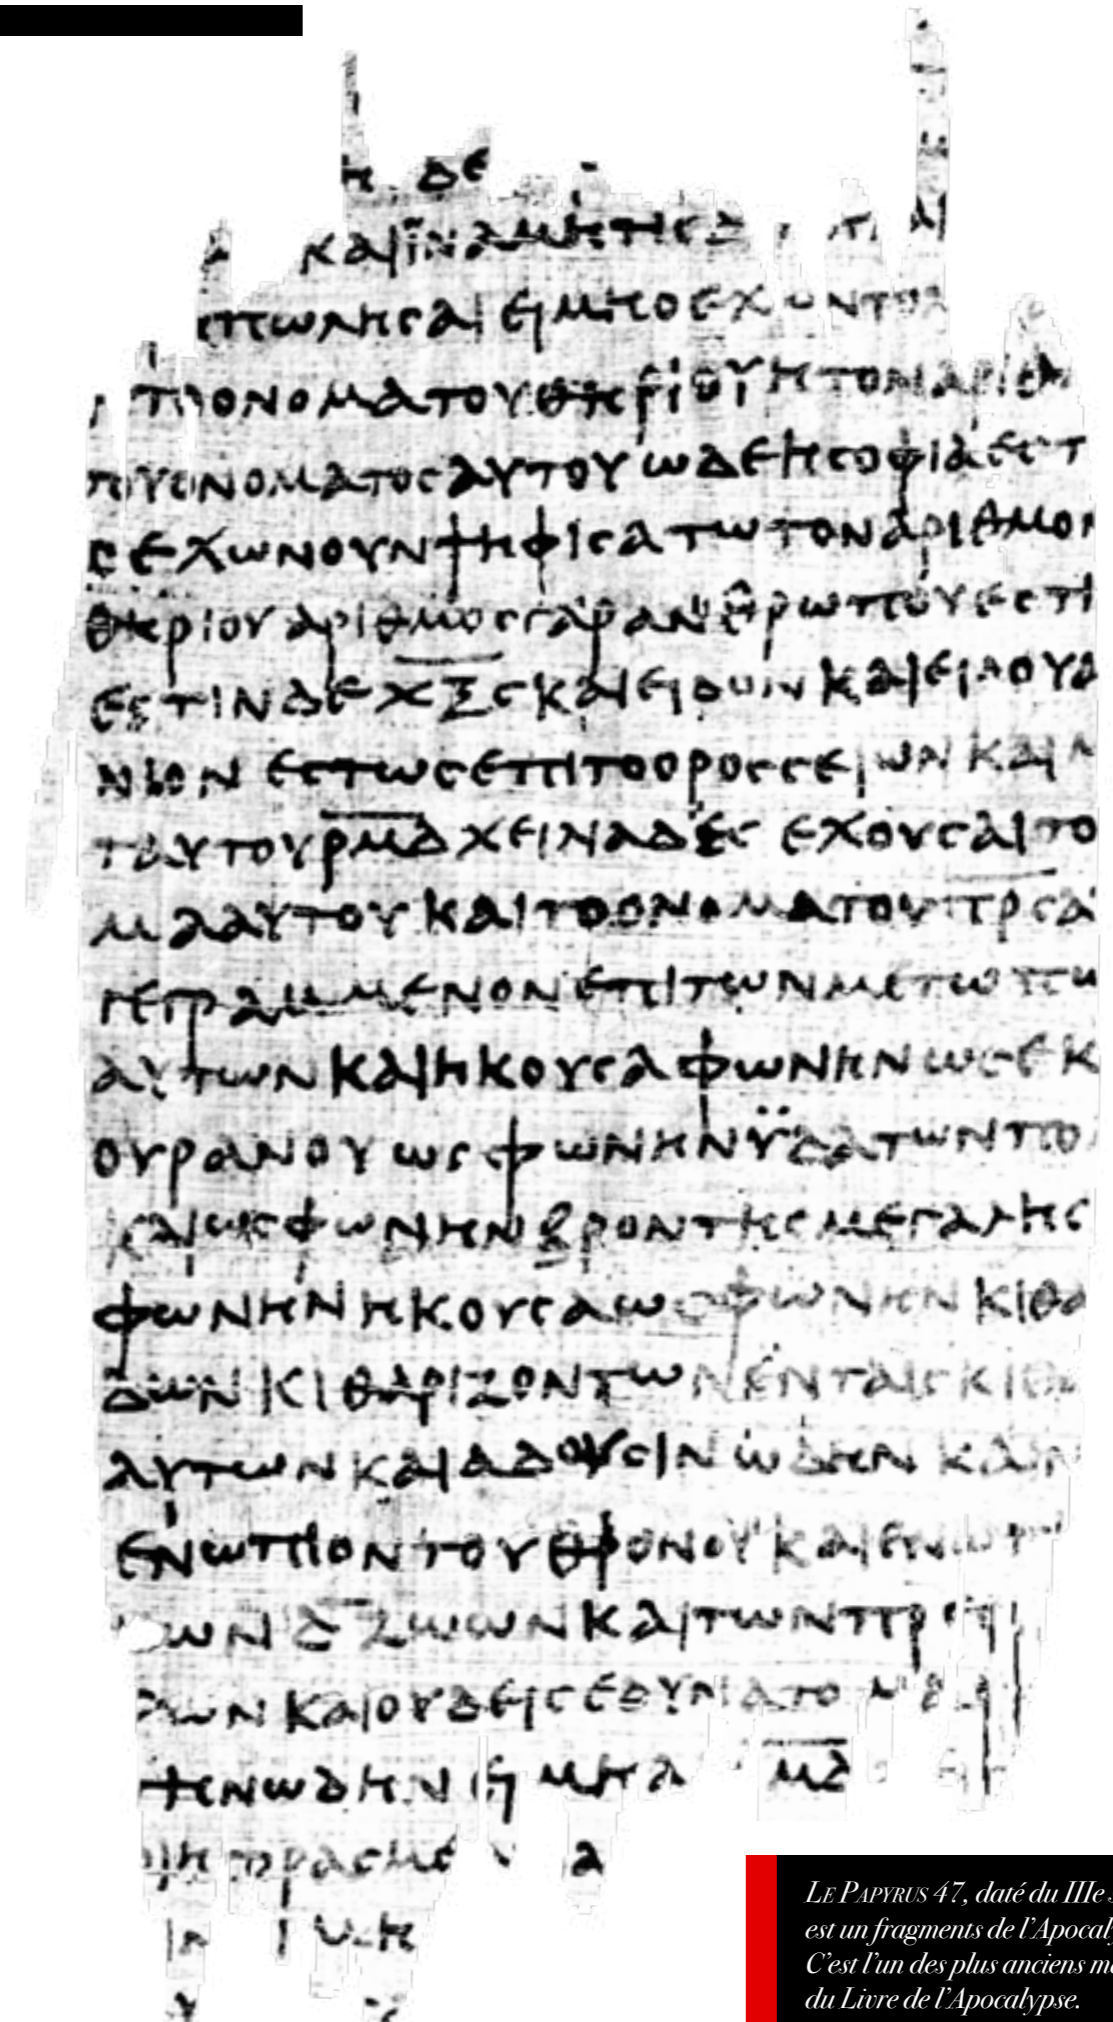 η δε
καιϊναμητις
πωλησαι ειμητοεχωντο
τοονοματουθηριουητοναριθ
τουονοματοσαυτουωδεησοφιαεστ
εχωνουνψηφισατωτοναριθμον
θηριουαριθμοσγαρανθρωπουεστι
εστινδεχξϛκαιειδονκαιειδουα
νιονεστωσεπιτοοροσσειωνκαι
ταυτουρμδχειλιαδεσεχουσαιτο
μααυτουκαιτοονοματουπρσα
γεγραμμενονεπιτωνμετωπω
αυτωνκαιηκουσαφωνηνωσεκ
ουρανουωσφωνηνϋδατωνπο
καιωσφωνηνβροντησμεγαλησ
φωνηνηκουσαωσφωνηνκιθα
δωνκιθαριζοντωνενταισκιθ
αυτωνκαιαδουσινωδηνκαιν
ενωπιοντουθρονουκαιενωπ
τωνδζωωνκαιτωνπρε
ρωνκαιουδεισεδυνατομα
τηνωδηνειμηα μδ
α
Le Papyrus 47, daté du IIIe
est un fragments de l'Apocaly
C'est l'un des plus anciens m
du Livre de l'Apocalypse.